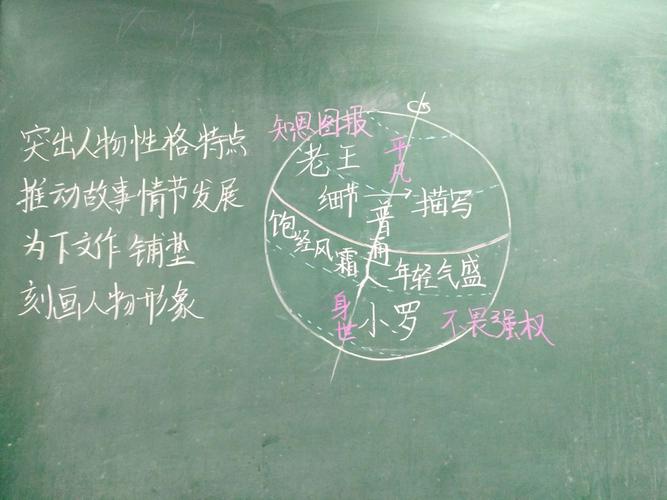 突出人物性格特点
推动故事情节发展
为下文作铺垫
刻画人物形象
知恩图报
老王
平凡
细节
描写
普通人
饱经风霜
年轻气盛
身世
小罗
不畏强权